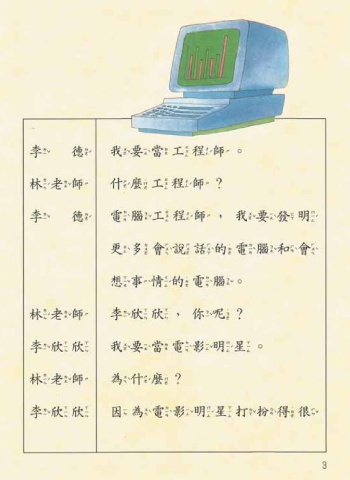 李德 我要當工程師。
林老師 什麼工程師？
李德 電腦工程師，我要發明
更多會說話的電腦和會
想事情的電腦。
林老師 李欣欣，你呢？
李欣欣 我要當電影明星。
林老師 為什麼？
李欣欣 因為電影明星打扮得很
3